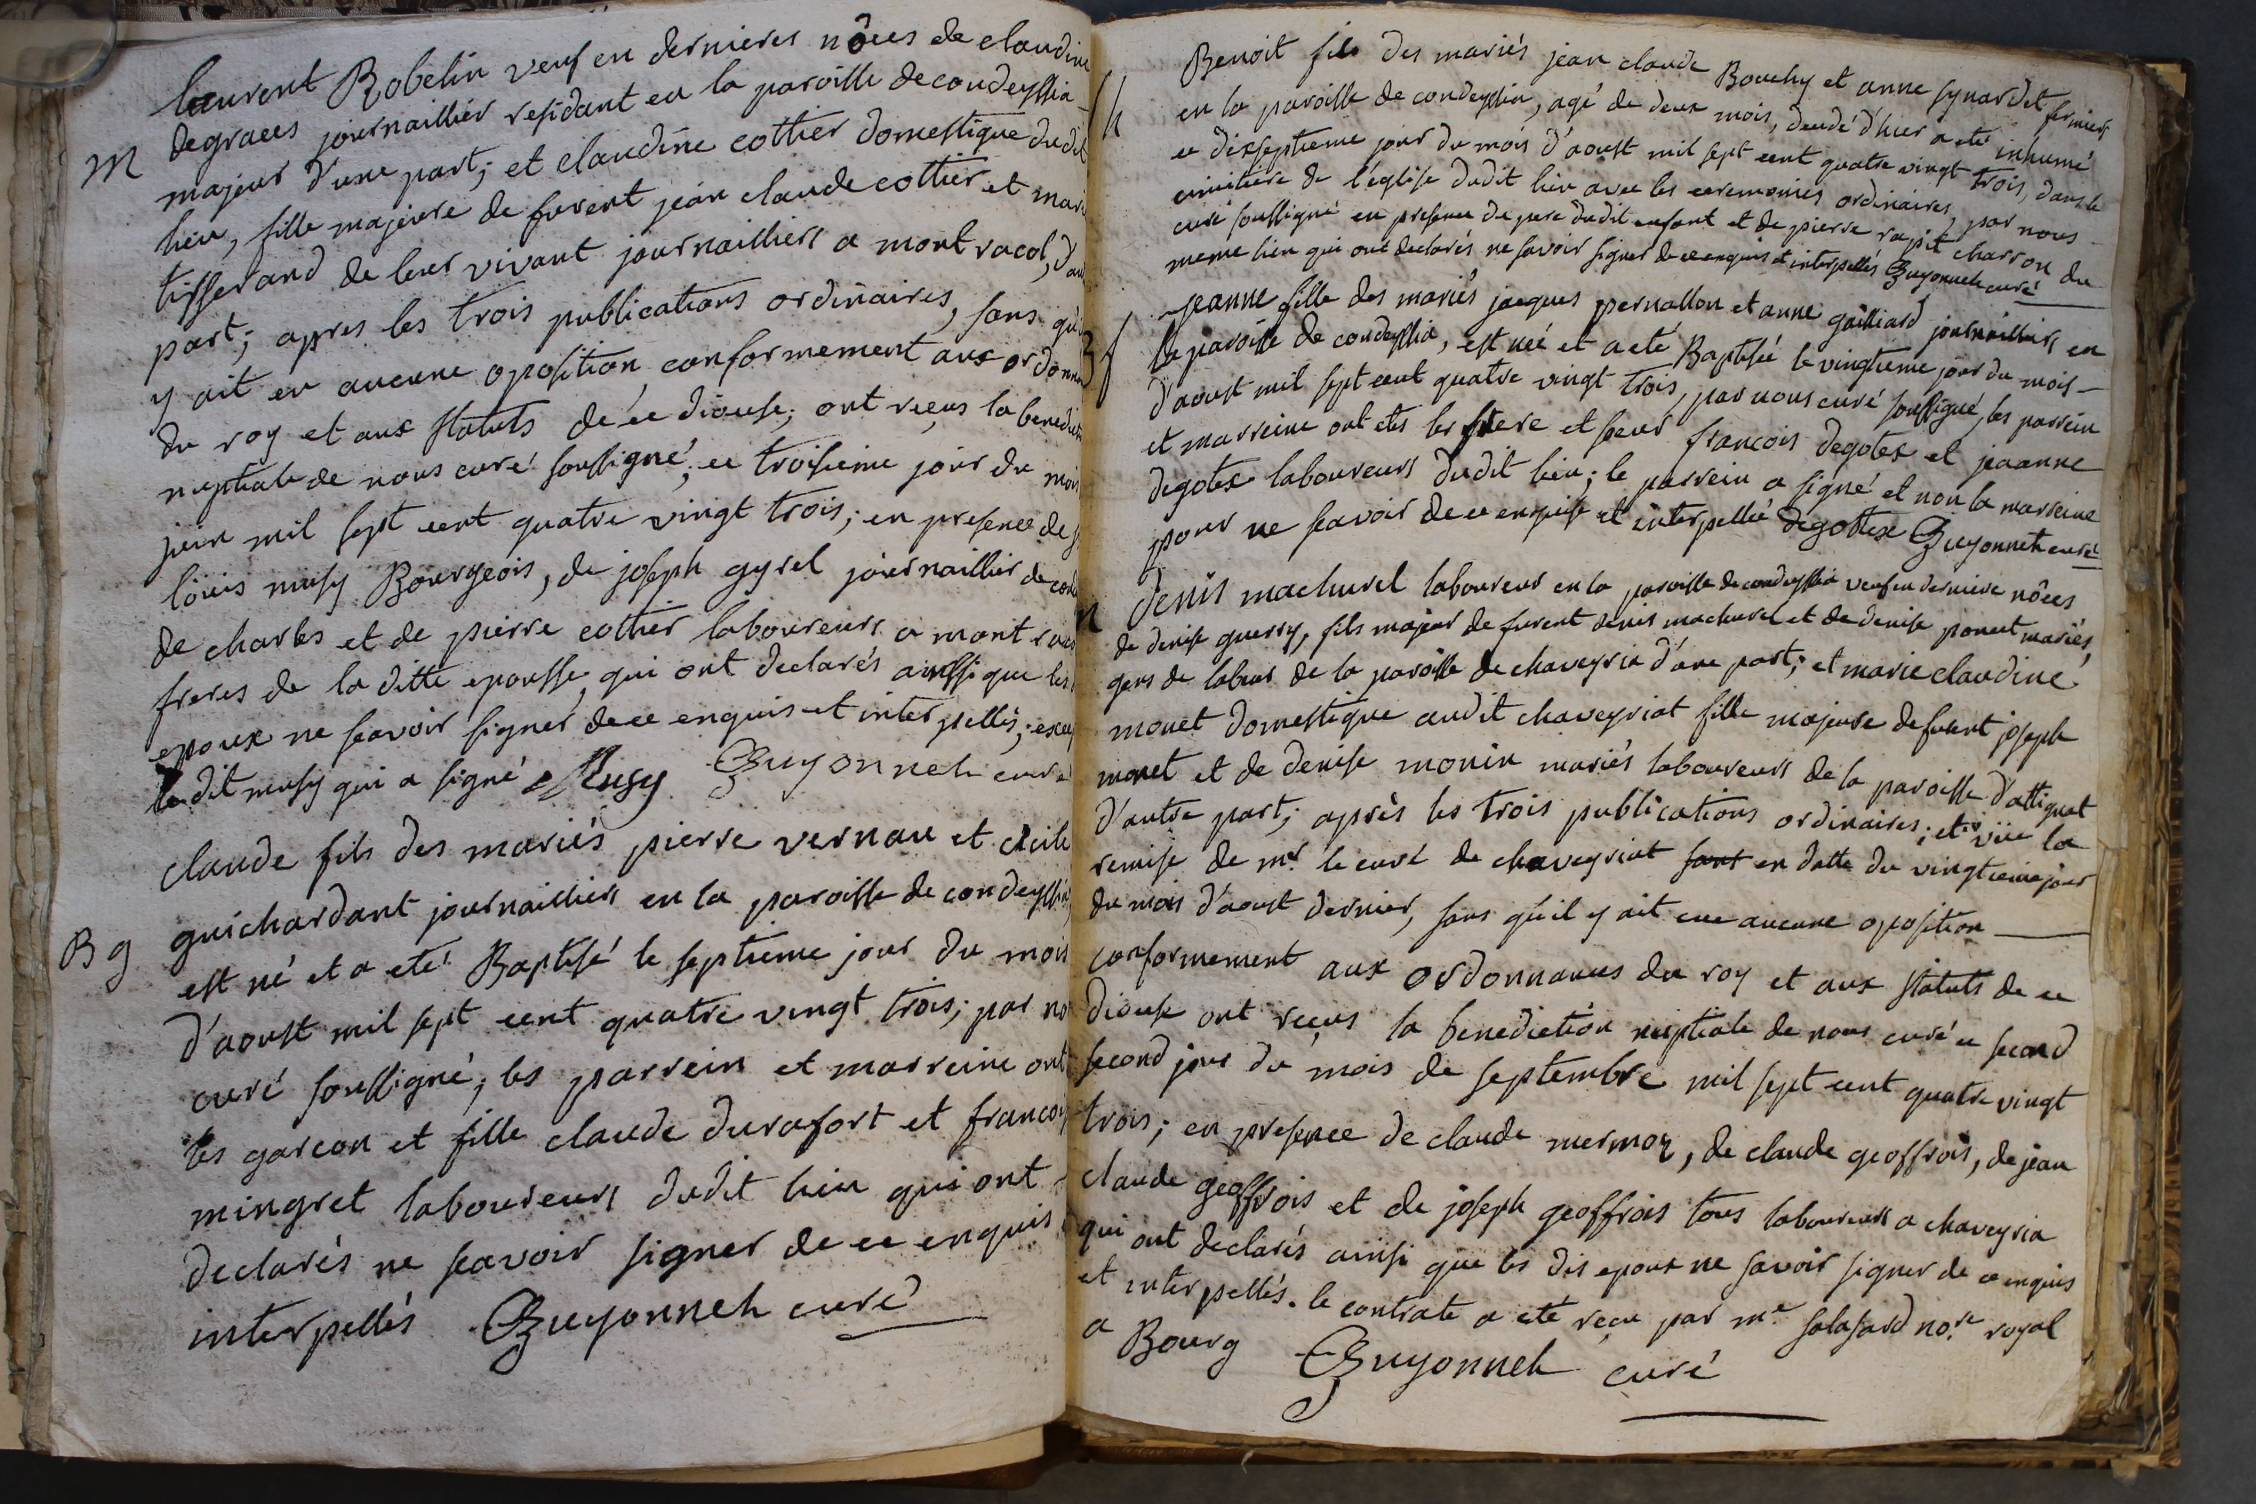 laurent Robelin veuf en dernieres nôces de claudine
degraces journaillier residant en la paroisse de condeyssia
M
majeur d'une part; et claudine cottier domestique dudit
lieu, fille majeure de furent jean claude cottier et mari
tisserand de leur vivant journailliers a mont racol, d'au
part; apres les trois publications ordinaires, sans qu'i
y ait eu aucune oposition conformement aux ordonna
du roy et aux statuts de ce diocese; ont reçus la benedict
nuptiale de nous curé soussigné, ce troisieme jour du mois
juin mil sept cent quatre vingt trois; en presence de
loüis musy Bourgeois, de joseph gyrel journaillier de cond
de charles et de pierre cottier laboureurs a mont raco
freres de la ditte epousse, qui ont declarés aussi que les
epoux ne scavoir signer de ce enquis et interpellés; excep
ledit musy qui a signé Musy Guyonneh curé
claude fils des mariés pierre vernau et cécile
guichardant journailliers en la paroisse de condeyssia
B g
est né et a eté Baptisé le septieme jour du mois
d'aoust mil sept cent quatre vingt trois; par no
curé soussigné, les parrein et marreine ont
les garcon et fille claude durafort et francoi
mingret laboureurs dudit lieu qui ont
declarés ne scavoir signer de ce enquis
interpellés Guyonneh curé
Benoit fils des mariés jean claude Bouchy et anne synardet fermiers
en la paroisse de condeyssia, agé de deux mois, decedé d'hier a eté inhumé
ce dixseptieme jour du mois d'aoust mil sept cent quatre vingt trois, dans le
cimitiere de l'église dudit lieu avec les ceremonies ordinaires, par nous
curé soussigné en presence du pere dudit enfant et de pierre rapit charron du
meme lieu qui ont declarés ne savoir signer de ce enquis et interpellés Guyonneh curé
jeanne fille des mariés jacques pernallon et anne gailliard journailliers en
f
la paroisse de condeyssia, est neé et a eté Baptisée le vingtieme jour du mois
d'aoust mil sept cent quatre vingt trois, par nous curé soussigné, les parrein
et marreine ont etés les frere et soeur francois degotex et jeanne
degotex laboureurs dudit lieu; le parrein a signé et non la marreine
pour ne scavoir de ce enquise et interpellée degottex Guyonneh curé
Denis machurel laboureur en la paroisse de condeyssia veuf en derniere nôces
de denise guerry, fils majeur de furent denis machurel et de denise poncet mariés,
gens de labeur de la paroisse de chaveyria d'une part; et marie claudine
monet domestique audit chaveyriat fille majeure de furent joseph
monet et de denise monin mariés laboureurs de la paroisse d'attignat
d'autre part; après les trois publications ordinaires; et vüe la
remise de mr. le curé de chaveyriat sans en datte du vingtieme jour
du mois d'aoust dernier, sans qu'il y ait eue aucune oposition
conformement aux ordonnances du roy et aux statuts de ce
diocese ont reçus la benediction nuptiale de nous curé ce second
second jour du mois de septembre mil sept cent quatre vingt
trois; en presence de claude mermoz, de claude geoffrois, de jean
claude geoffrois et de joseph geoffrois tous laboureurs a chaveyria
qui ont declarés ainsi que les dis epoux ne savoir signer de ce enquis
et interpellés. le contrate a eté reçu par me. salasard nore. royal
a Bourg Guyonneh curé